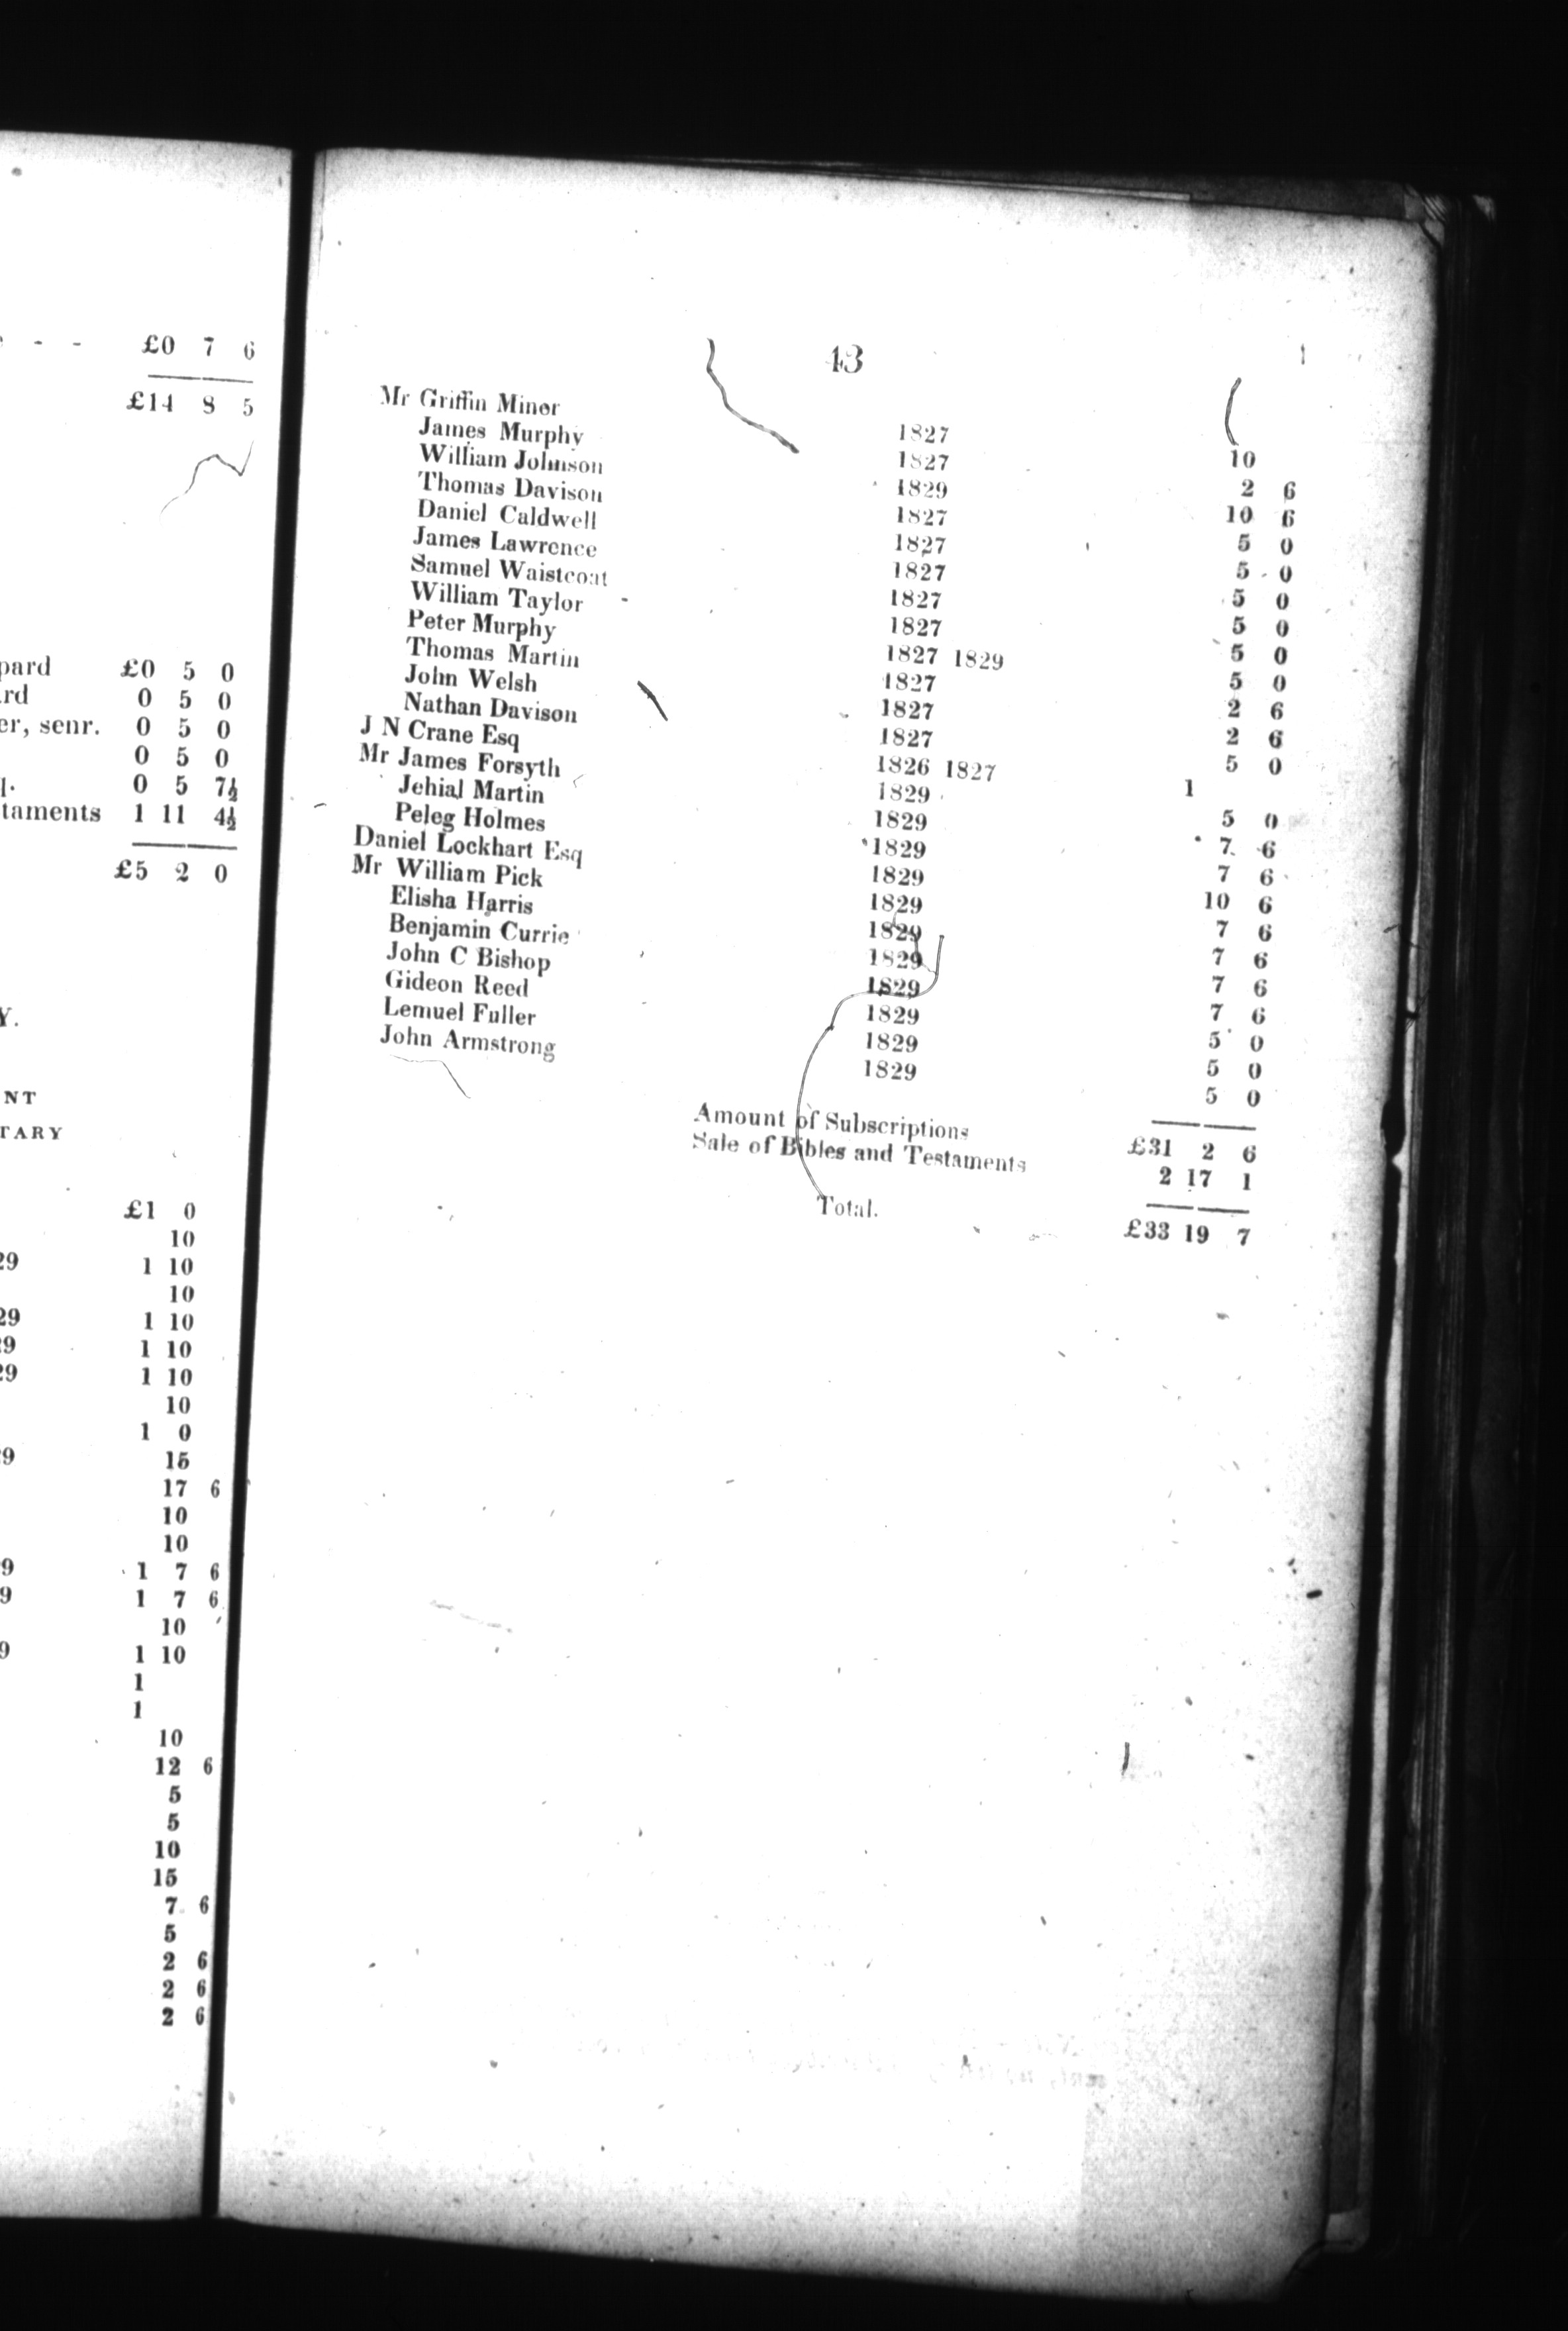 - - £0 7 6
£14 8 5
pard £0 5 0
rd 0 5 0
er, senr. 0 5 0
0 5 0
0 5 7½
taments 1 11 4½
£5 2 0
Y.
NT
TARY
£1 0
10
29 1 10
10
29 1 10
29 1 10
29 1 10
10
1 0
29 15
17 6
10
10
9 1 7 6
9 1 7 6
10
9 1 10
1
1
10
12 6
5
5
10
15
7 6
5
2 6
2 6
2 6
43
Mr Griffin Minor 1827 10
James Murphy 1827 2 6
William Johnson 1829 10 6
Thomas Davison 1827 5 0
Daniel Caldwell 1827 5 0
James Lawrence 1827 5 0
Samuel Waistcoat 1827 5 0
William Taylor 1827 5 0
Peter Murphy 1827 1829 5 0
Thomas Martin 1827 2 6
John Welsh 1827 2 6
Nathan Davison 1827 5 0
J N Crane Esq 1826 1827 1
Mr James Forsyth 1829 5 0
Jehial Martin 1829 7 6
Peleg Holmes 1829 7 6
Daniel Lockhart Esq 1829 10 6
Mr William Pick 1829 7 6
Elisha Harris 1829 7 6
Benjamin Currie 1829 7 6
John C Bishop 1829 7 6
Gideon Reed 1829 5 0
Lemuel Fuller 1829 5 0
John Armstrong 1829 5 0
Amount of Subscriptions £31 2 6
Sale of Bibles and Testaments 2 17 1
Total. £33 19 7